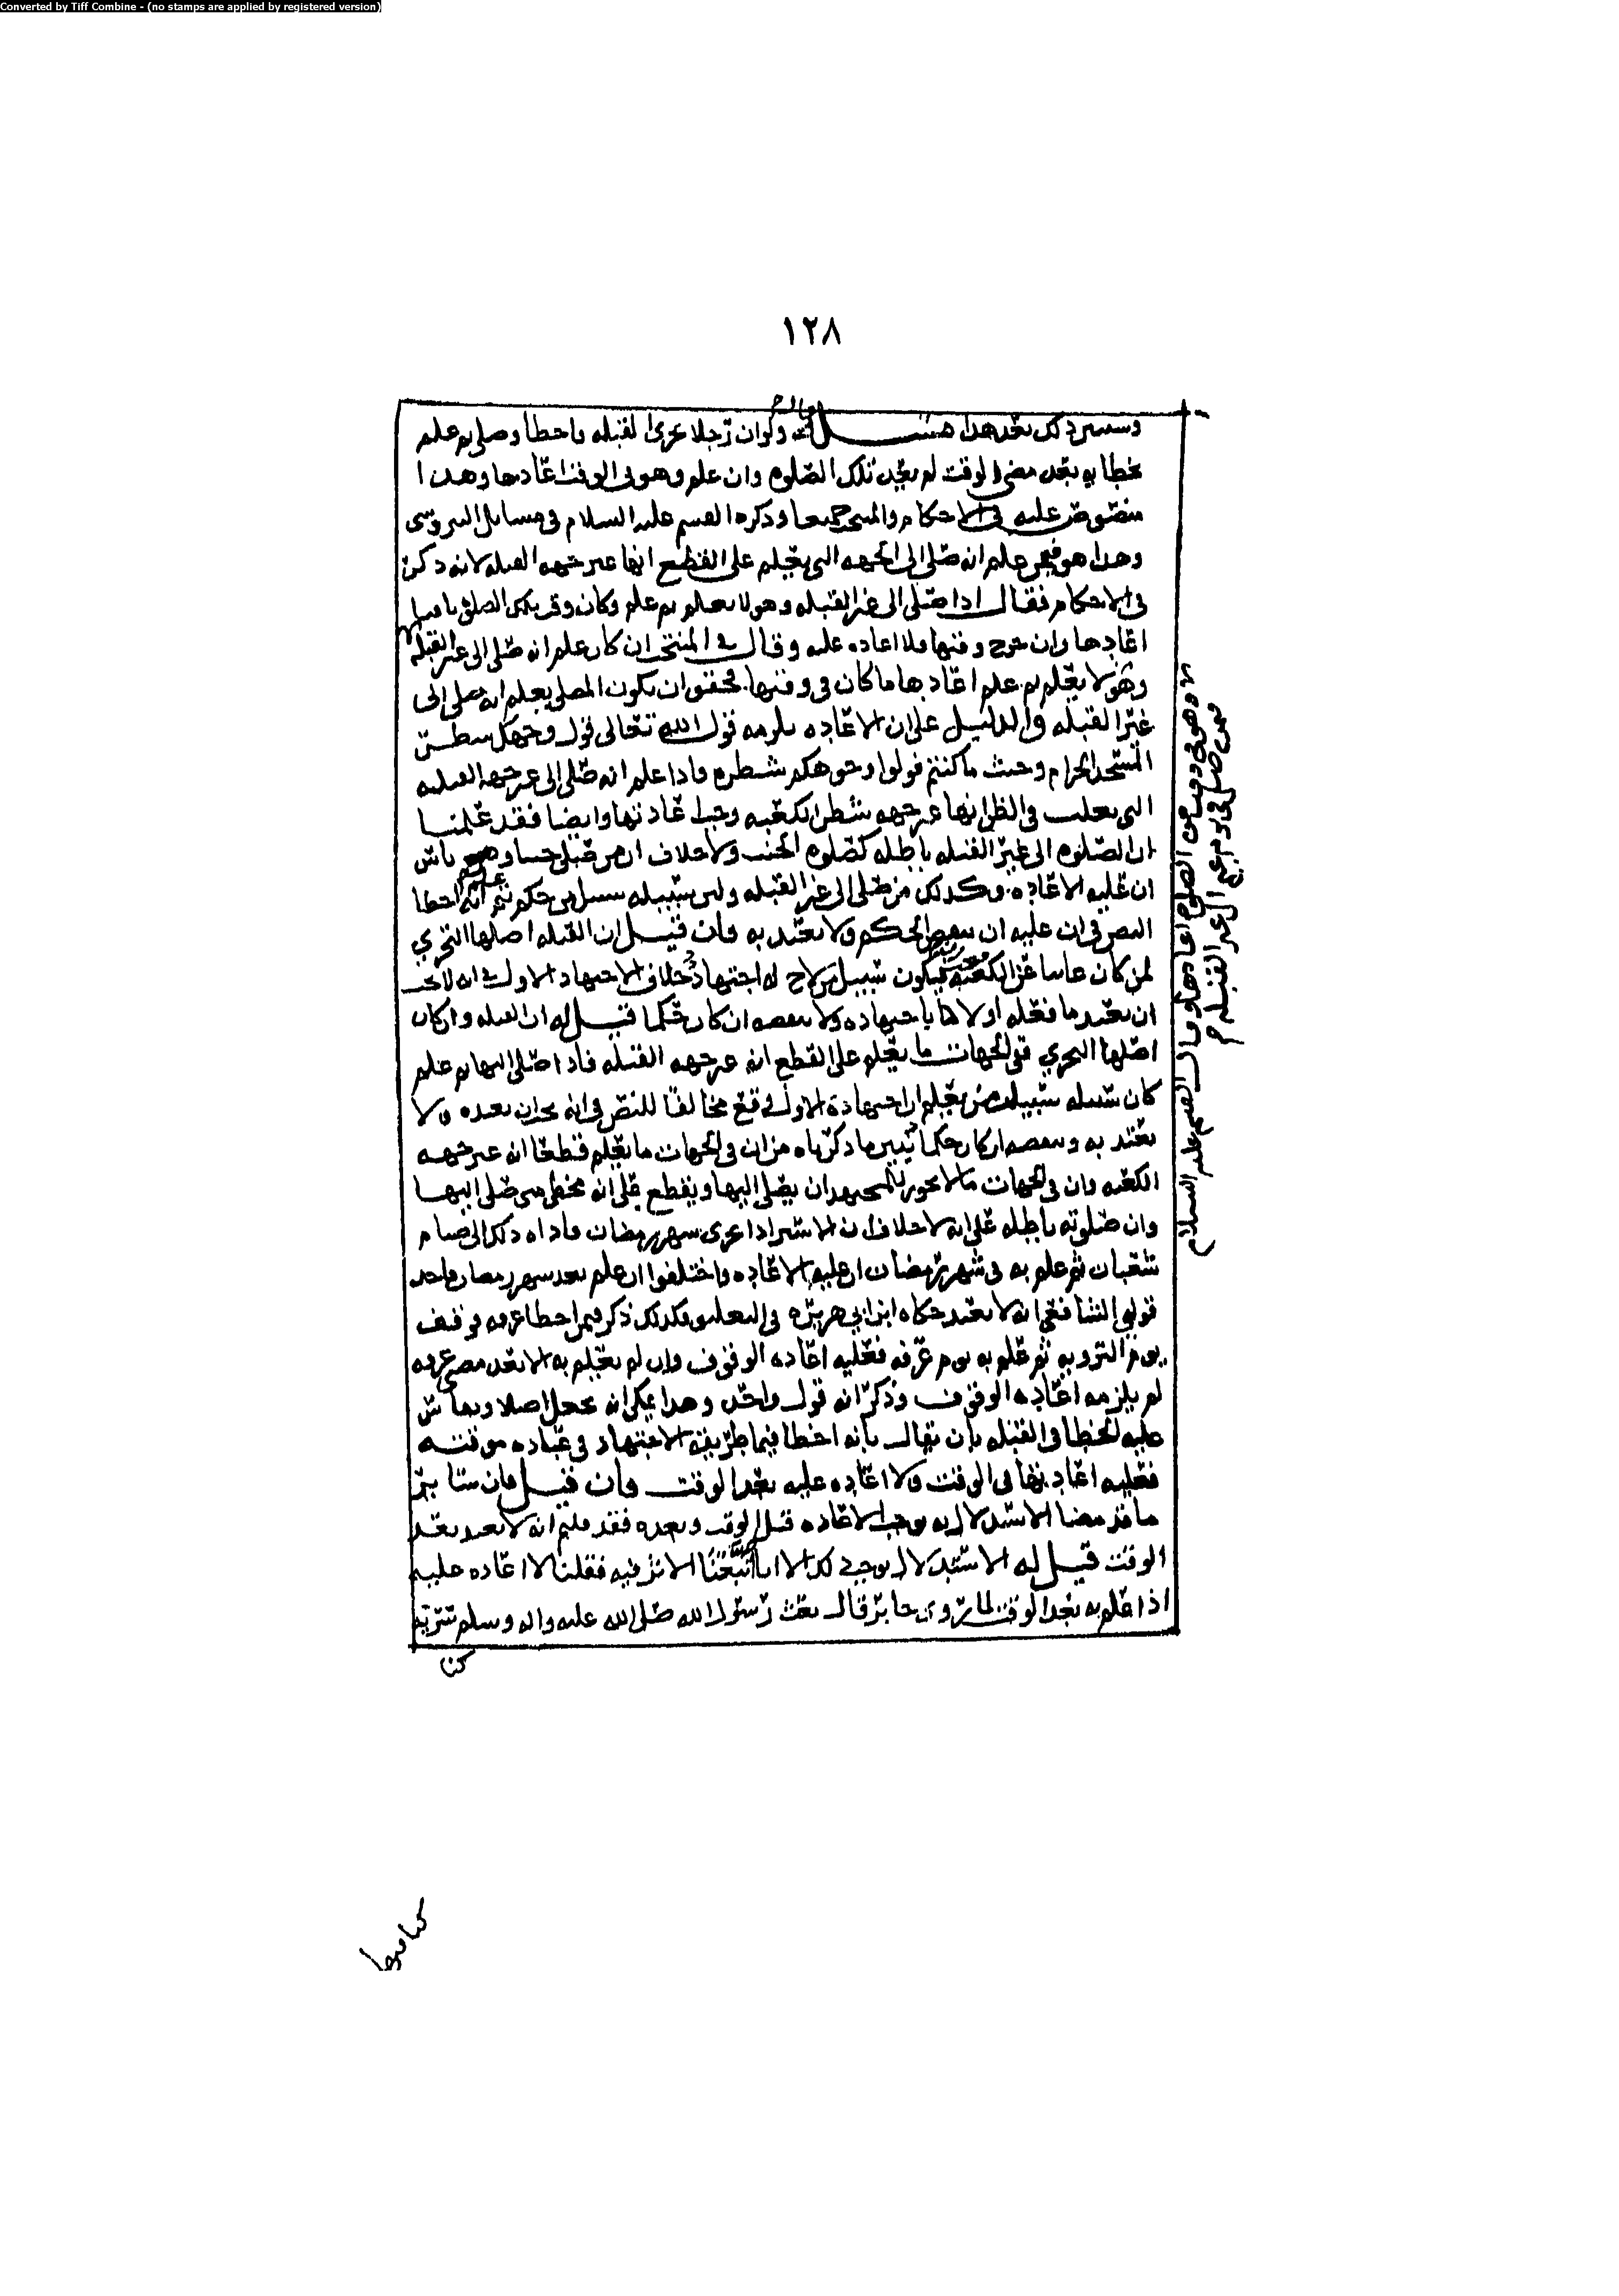 Converted by Tiff Combine - (no stamps are applied by registered version)
١٢٨
وسنبين ذلك بعد هذا مسألة قال ولو ان رجلا تحرى القبله فاخطأ وصلى ثم علم
بخطايه بعد مضي الوقت لم يعد تلك الصلوه وان علم وهو في الوقت اعادها وهذا
منصوص عليه في الاحكام والمنتخب جميعا وذكره القسم عليه السلام في مسايل النيروسي
وهذا هو فيمن علم انه صلى الى الجهه التي يعلم على القطع انها غير جهه القبله لانه ذكره
في الاحكام فقال اذا صلى الى غير القبله وهو لا يعلم ثم علم وكان وقت تلك الصلوه باقيا
اعادها وان خرج وقتها فلا اعاده عليه وقال في المنتخب ان كان علم انه صلى الى غير القبله
وهو لا يعلم ثم علم اعادها ما كان في وقتها فحقق ان يكون المصلي يعلم انه صلى الى
غير القبله والدليل على ان الاعاده تلزمه قول الله تعالى فول وجهك شطر
المسجد الحرام وحيث ما كنتم فولوا وجوهكم شطره فاذا علم انه صلى الى غير جهه القبله
التي يغلب في الظن انها جهه شطر الكعبه وجب اعادتها وايضا فقد علمنا
ان الصلوه الى غير القبله باطله كصلوه الجنب ولا خلاف ان من صلى جنبا وهو ناس
ان عليه الاعاده وكذلك من صلى الى غير القبله وليس سبيله سبيل من حكم ثم علم انه اخطا
النص في ان عليه ان ينقض الحكم ولا يعتد به فان قيل ان القبله اصلها التحري
لمن كان غايبا عن الكعبه فيكون سبيل من لاح له اجتهاد خلاف الاجتهاد الاول في انه لا يجب
ان يعيد ما فعله اولا باجتهاده ولا ينقضه ان كان حكما قيل له ان القبله وان كان
اصلها التحري ففي الجهات ما يعلم على القطع انه غير جهه القبله فاذا صلى اليها ثم علم
كان سبيله سبيل من يعلم ان اجتهاده الاول وقع مخالفا للنص في انه يجب ان يعيده ولا
يعتد به وينقضه ان كان حكما يبين ما ذكرناه من ان في الجهات ما يعلم قطعا انه غير جهه
الكعبه وان في الجهات ما لا يجوز للمجتهد ان يصلي اليها ويقطع على انه مخطي متى صلى اليها
وان صلوته باطله على انه لا خلاف ان الاسير اذا تحرى شهر رمضان فاداه ذلك الى صيام
شعبان ثم علم به في شهر رمضان ان عليه الاعاده واختلفوا ان علم بعد شهر رمضان فاحد
قولي الشافعي انه لا يعيد حكاه ابن ابي هريره في التعليق وكذلك ذكر فيمن اخطا عرفه فوقف
يوم الترويه ثم علم به يوم عرفه فعليه اعاده الوقوف وان لم يعلم به الا بعد مضي عرفه
لم يلزمه اعاده الوقوف وذكر انه قول واحد وهذا يمكن انه يجعل اصلا ويقاس
عليه الخطا في القبله بان يقال بانه اخطا فيما طريقه الاجتهاد في عباده موقته
فعليه اعادتها في الوقت ولا اعاده عليه بعد الوقت فان قيل فان ساير
ما قد مضا الاستدلال به يوجب الاعاده قبل الوقت وبعده فقد قلتم انه لا يعيد بعد
الوقت قيل له الاستدلال يوجب ذلك الا انا اتبعنا الاثر فيه فقلنا لا اعاده عليه
اذا علم به بعد الوقت لما روي عن جابر قال بعث رسول الله صلى الله عليه واله وسلم سريه
كنا
وقال القسم عليه السلام
كنا فيها